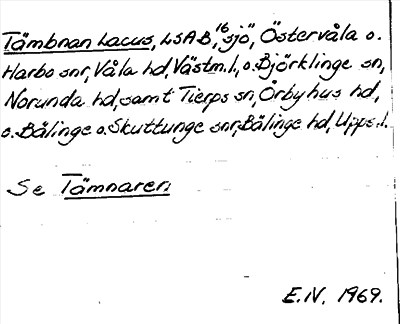 Tämbnan Lacus, LSAB,16 "sjö", Östervåla o.
Harbo snr, Våla hd, Västm.l., o. Björklinge sn,
Norunda hd, samt Tierps sn, Örbyhus hd,
o. Bälinge o. Skuttunge snr, Bälinge hd, Upps.l.
Se Tämnaren
E.N. 1969.